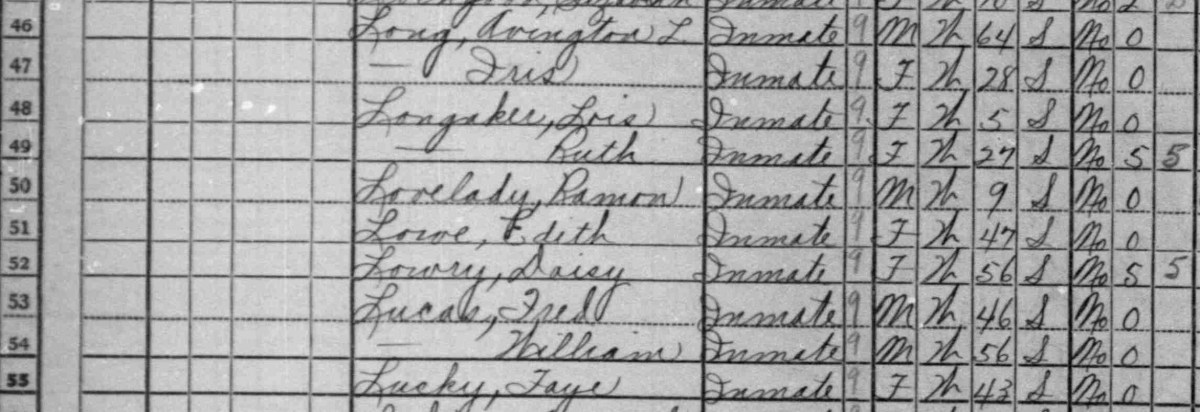 Inmate 9 F W S No 2
46 Long, Avington L Inmate 9 M W 64 S No 0
47 — Iris Inmate 9 F W 28 S No 0
48 Longaker, Lois Inmate 9 F W 5 S No 0
49 — Ruth Inmate 9 F W 27 S No 5 5
50 Lovelady, Ramon Inmate 9 M W 9 S No 0
51 Lowe, Edith Inmate 9 F W 47 S No 0
52 Lowry, Daisy Inmate 9 F W 56 S No 5 5
53 Lucas, Fred Inmate 9 M W 46 S No 0
54 — William Inmate 9 M W 56 S No 0
55 Lucky, Faye Inmate 9 F W 43 S No 0